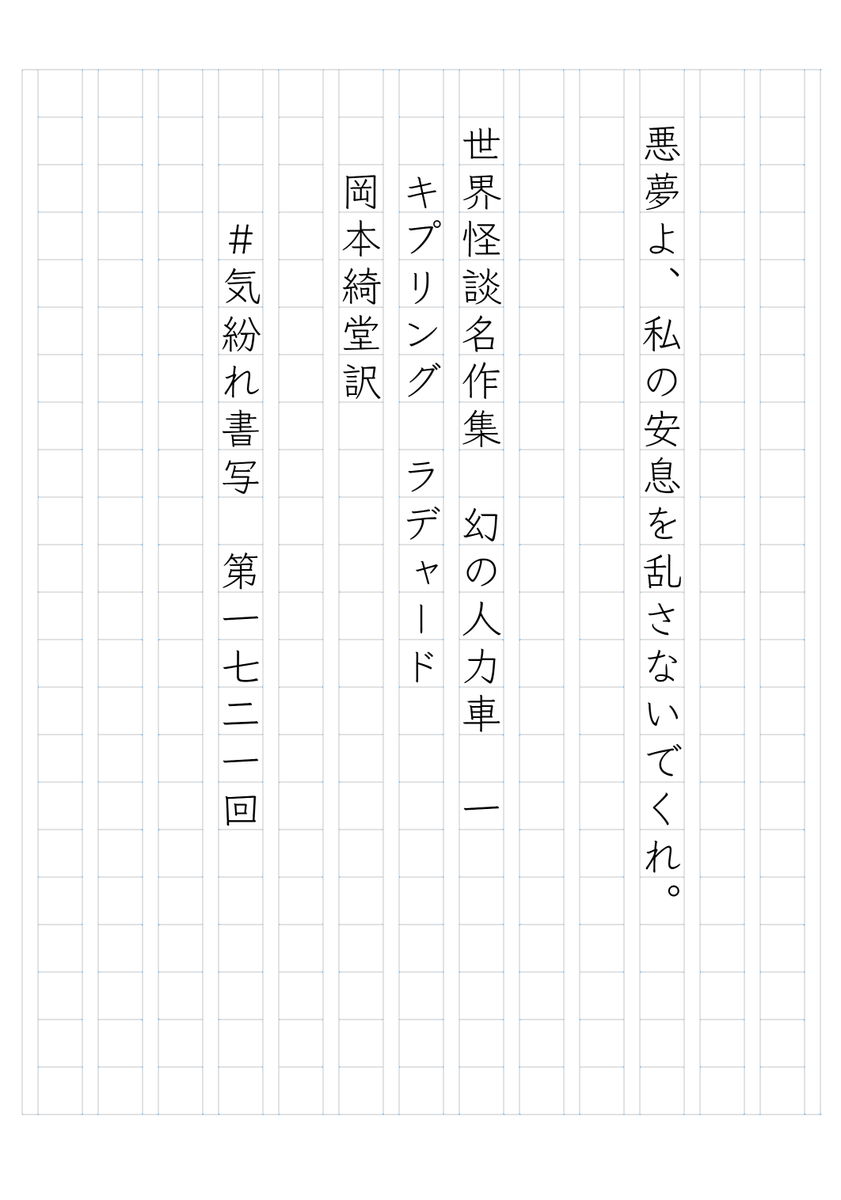 悪夢よ、私の安息を乱さないでくれ。
世界怪談名作集　幻の人力車　一
キプリング　ラデャード
岡本綺堂訳
#気紛れ書写　第一七二一回